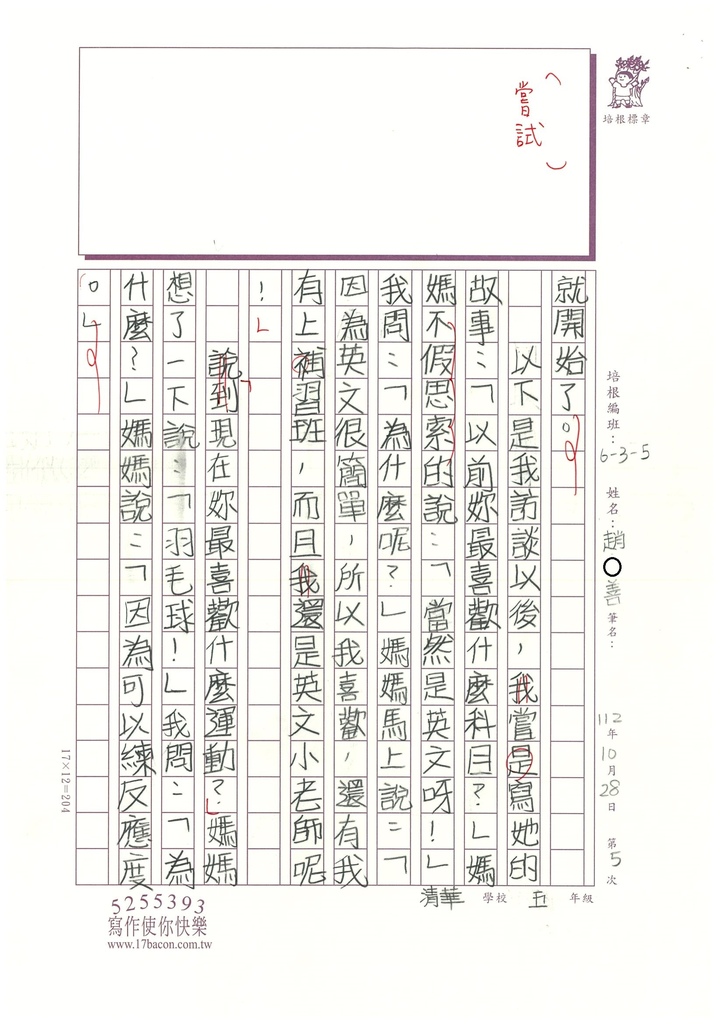 （嘗試）
培根標章
培根編班：6-3-5 姓名：趙○善 筆名：
112年10月28日 第5次
清華 學校 五 年級
就開始了。
以下是我訪談以後，我嘗是寫她的
故事：「以前妳最喜歡什麼科目？」媽
媽不假思索的說：「當然是英文呀！」
我問：「為什麼呢？」媽媽馬上說：「
因為英文很簡單，所以我喜歡，還有我
有上補習班，而且我還是英文小老師呢
！」
說到現在妳最喜歡什麼運動？」媽媽
想了一下說：「羽毛球！」我問：「為
什麼？」媽媽說：「因為可以練反應度
。」
17×12=204
5255393
寫作使你快樂
www.17bacon.com.tw